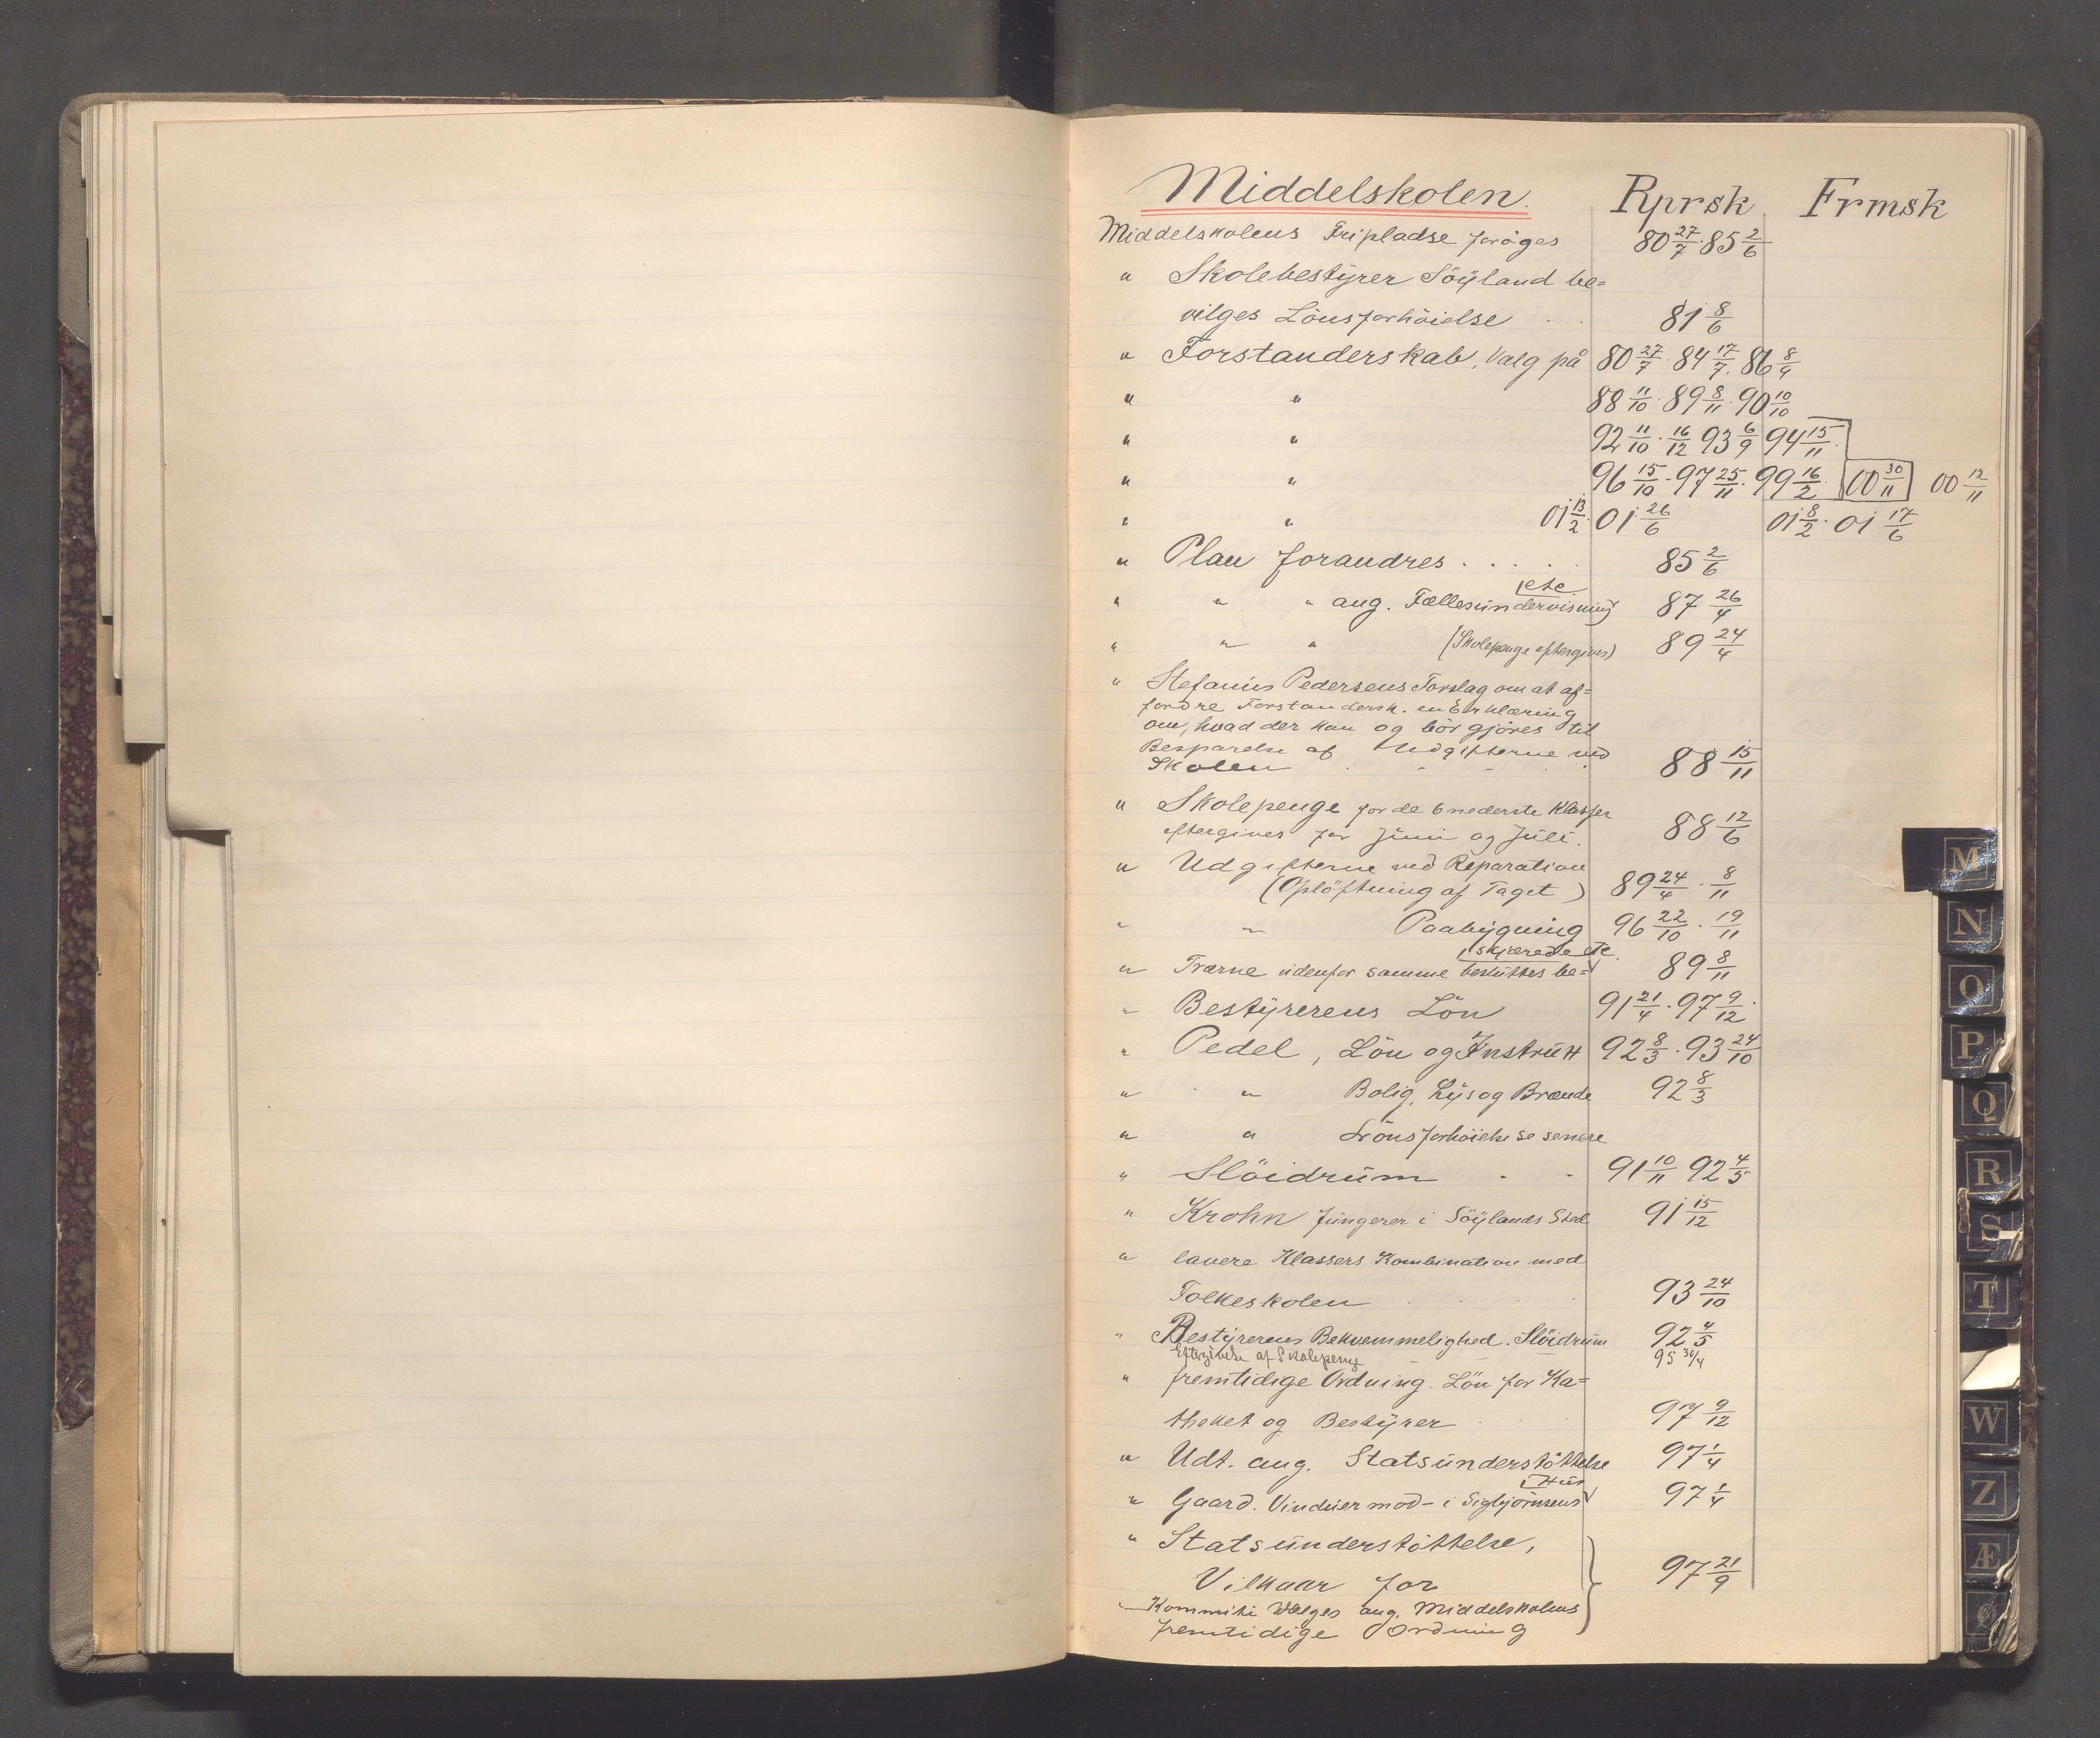 Middelskolen. Rprsk Frmsk
Middelskolens Fripladse forøges 80 27/7 · 85 2/6
" Skolebestyrer Söyland be=
vilges Lönsforhöielse . . 81 8/6
" Forstanderskab, Valg på 80 27/7 · 84 17/7 · 86 8/4
" " 88 11/10 · 89 8/11 · 90 10/10
" " 92 11/10 · 16/12 93 6/9 94 15/11
" " 96 15/10 · 97 25/11 · 99 16/2 00 30/11 00 12/11
" " 01 13/2 · 01 26/6 01 8/2 · 01 17/6
" Plan forandres . . . . . 85 2/6
" " " ang. Fællesundervisning etc. 87 26/4
" " " (Skolepenge eftergives) 89 24/4
" Stefanus Pedersens Forslag om at af=
fordre Forstandersk. en Erklæring
om, hvad der kan og bör gjöres til
Besparelse af Udgifterne ved
Skolen . . . . 88 15/11
" Skolepenge for de 6 nederste Klasser
eftergives for Juni og Juli. 88 12/6
" Udgifterne ved Reparation
(Oplöftning af Taget) 89 24/4 · 8/11
" " Paabygning 96 22/10 · 19/11
" Trærne udenfor samme besluttes be= skjærede etc. 89 8/11
" Bestyrerens Lön 91 21/4 · 97 9/12 ·
" Pedel, Lön og Instrux 92 8/3 · 93 24/10
" " Bolig, Lys og Brænde 92 8/3
" " Lönsforhöielse se senere
" Slöidrum . . 91 10/11 92 4/5
" Krohn fungerer i Söylands Sted 91 15/12
" lavere Klassers Kombination med
Folkeskolen . . . 93 24/10
" Bestyrerens Bekvemmelighed. Slöidrum 92 4/5
Eftergivelse af Skolepenge 95 30/4
" fremtidige Ordning. Lön for Ka=
theket og Bestyrer . . . 97 9/12
" Udt. ang. Statsunderstöttelse 97 1/4
" Gaard. Vinduer mod - i Sigbjörnsens Hus 97 1/4
" Statsunderstöttelse,
Vilkaar for 97 21/9
" Kommite vælges ang. Middelskolens
fremtidige Ordning
M
N
O
P
Q
R
S
T
W
Z
Æ
Ø